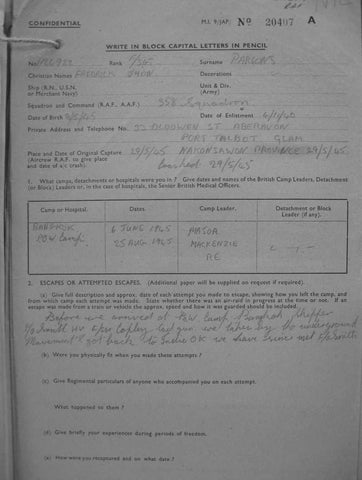 CONFIDENTIAL M.I. 9/JAP/ No 20407 A
WRITE IN BLOCK CAPITAL LETTERS IN PENCIL
No. Rank F/Sgt Surname PARSONS
Christian Names FREDRICK JOHN Decorations
Ship (R.N., U.S.N. or Merchant Navy) Unit & Div. (Army)
Squadron and Command (R.A.F. A.A.F.) 358 Squadron
Date of Birth Date of Enlistment
Private Address and Telephone No. ST ABERAVON
PORT TALBOT GLAM
Place and Date of Original Capture 29/5/45 PROVINCE 29/5/45
(Aircrew R.A.F. to give place and date of a/c crash). crashed 29/5/45
1. What camps, detachments or hospitals were you in? Give dates and names of the British Camp Leaders, Detachment
(or Block) Leaders or, in the case of hospitals, the Senior British Medical Officers.
Camp or Hospital. Dates. Camp Leader. Detachment or Block Leader (if any).
BANGKOK 6 JUNE 1945 MAJOR
POW Camp. 25 AUG 1945 MACKENZIE
RE
2. ESCAPES OR ATTEMPTED ESCAPES. (Additional paper will be supplied on request if required).
(a) Give full description and approx. date of each attempt you made to escape, showing how you left the camp, and
from which camp each attempt was made. State whether there was an air-raid in progress at the time or not. If an
escape was made from a train or vehicle the approx. speed and how it was guarded should be included.
Before we arrived at POW Camp Bangkok Skipper
F/O Smith HV & Sgt Copley were taken by the underground
Movement & got back to India OK we have since met F/O Smith
(b) Were you physically fit when you made these attempts?
(c) Give Regimental particulars of anyone who accompanied you on each attempt.
What happened to them?
(d) Give briefly your experiences during periods of freedom.
(e) How were you recaptured and on what date?